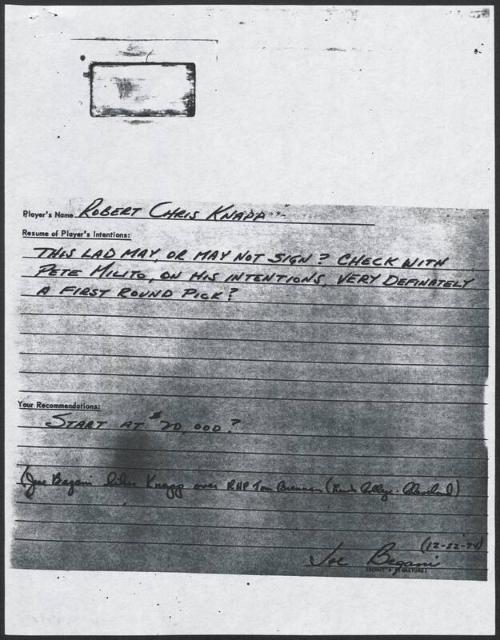 Player's Name ROBERT CHRIS KNAPP
Resume of Player's Intentions:
THIS LAD MAY, OR MAY NOT SIGN? CHECK WITH
PETE MILITO, ON HIS INTENTIONS, VERY DEFINATELY
A FIRST ROUND PICK?
Your Recommendations:
START AT $20,000?
(Joe Begani likes Knapp over RHP Tom Brennan (
(12-22-74)
Joe Begani